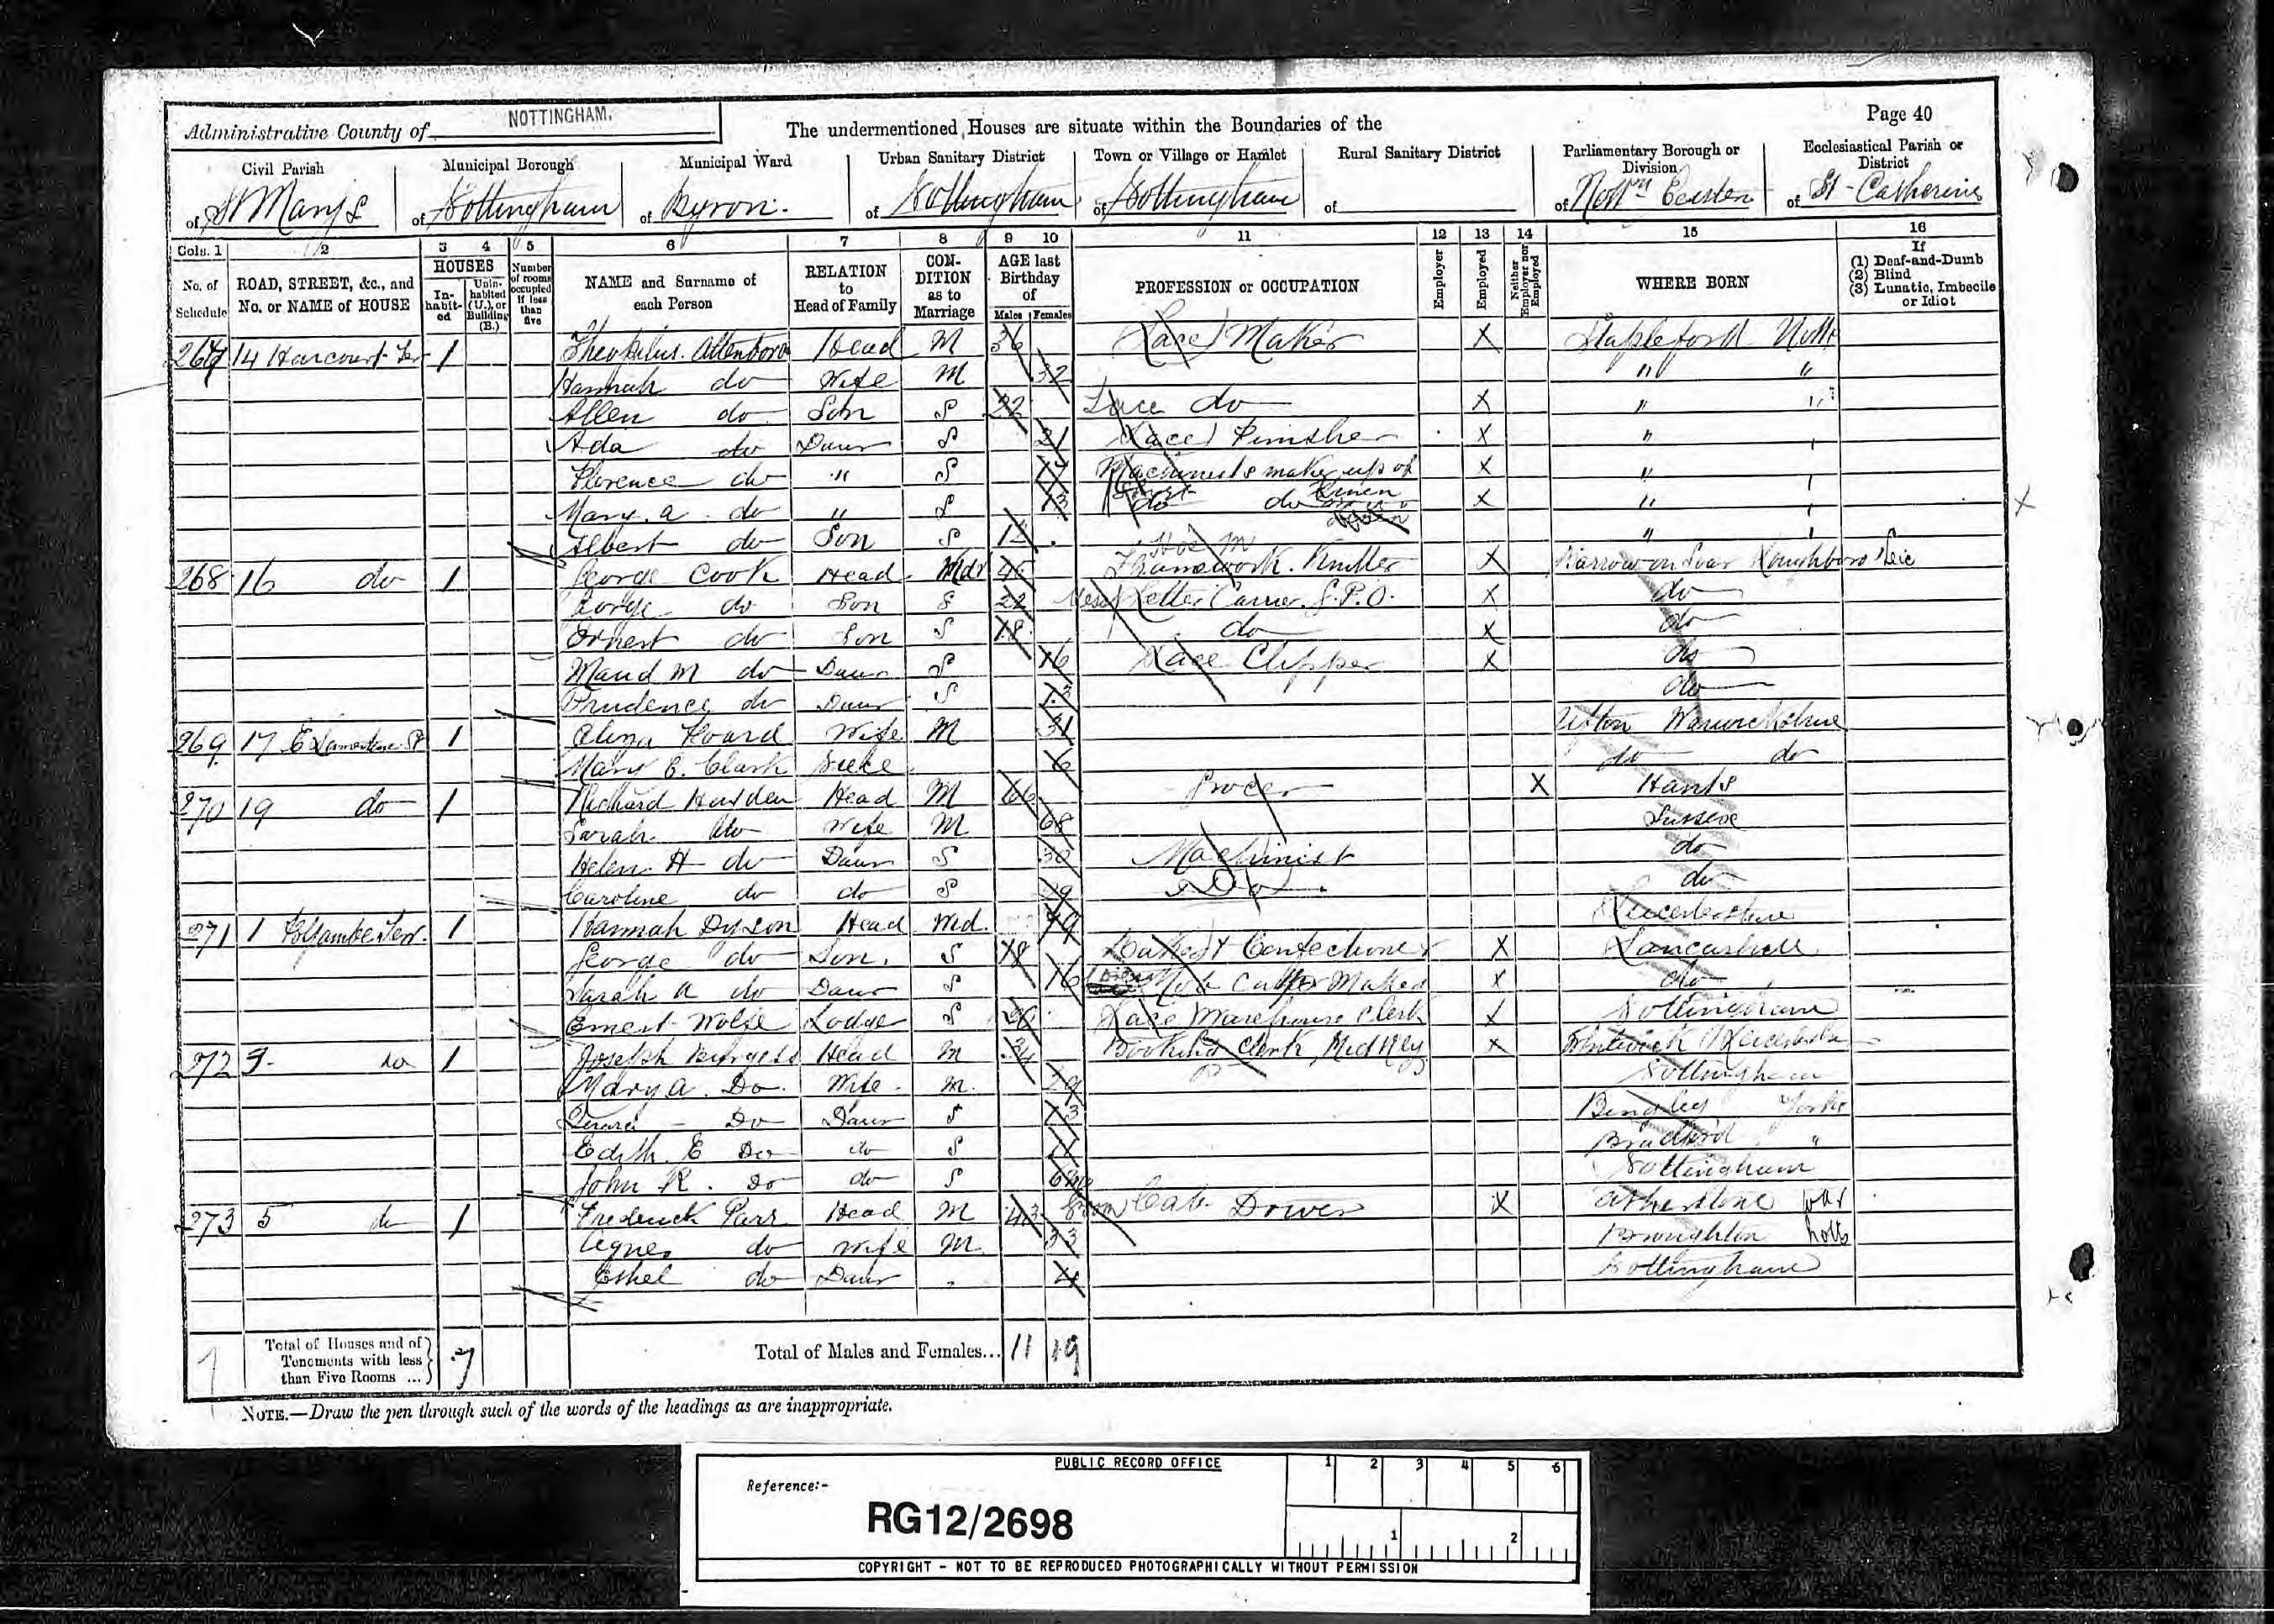 Page 40
Administrative County of NOTTINGHAM.
The undermentioned Houses are situate within the Boundaries of the
Civil Parish Municipal Borough Municipal Ward Urban Sanitary District Town or Village or Hamlet Rural Sanitary District Parliamentary Borough or Division Ecclesiastical Parish or District
of St Marys of Nottingham of Byron. of Nottingham of Nottingham of of Nottm Eastern of St Catherine
Cols. 1 2 3 4 5 6 7 8 9 10 11 12 13 14 15 16
No. of Schedule ROAD, STREET, &c., and No. or NAME of HOUSE HOUSES In-habit-ed Unin-habited (U.), or Building (B.) Number of rooms occupied if less than five NAME and Surname of each Person RELATION to Head of Family CON-DITION as to Marriage AGE last Birthday of Males Females PROFESSION or OCCUPATION Employer Employed Neither Employer nor Employed WHERE BORN If (1) Deaf-and-Dumb (2) Blind (3) Lunatic, Imbecile or Idiot
267 14 Harcourt Ter 1 Theophilus Attenboro Head M 36 Lace Maker X Stapleford Notts
Hannah do Wife M 32 " "
Allen do Son S 22 Lace do X " "
Ada do Daur S 21 Lace Finisher X "
Florence do " S Machinists make up of X "
Mary. a. do " S 13 do do Linen X "
Albert do Son S 12 "
268 16 do 1 George Cook Head Wdr Framework Knitter X Barrow on Soar Loughboro Leic
George do Son S 22 Letter Carrier. G.P.O. X do
Ernest do Son S 18 do X do
Maud M do Daur S 16 Lace Clipper X do
Prudence do Daur S 13 do
269 17 1 Eliza Wife M 31 Warwickshire
Mary E. Clark Niece 6 do do
270 19 do 1 Richard Hayden Head M 66 Grocer X Hants
Sarah do Wife M 68 Sussex
Helen H do Daur S 30 Machinist do
Caroline do do S 29 Do do
271 1 Foljambe Terr. 1 Hannah Dyson Head Wid. 49 Leicestershire
George do Son. S 18 Baker & Confectioner X Lancashire
Sarah A do Daur S 16 Maker X do
Ernest Wolfe Lodger S Lace Warehouse Clerk X Nottingham
272 3 do 1 Joseph Burgess Head M 34 Booking Clerk, Mid Rly X Leicester
Mary A. Do. Wife. M. 29 Nottingham
Do Daur S 13 Bingley Yorks
Edith. E Do do S 11 Bradford "
John R. Do do S Nottingham
273 5 do 1 Frederick Parr Head M 43 Cab Driver X Atherstone War
Agnes do Wife M. 33 Broughton Notts
Ethel do Daur 4 Nottingham
Total of Houses and of Tenements with less than Five Rooms ... 7 Total of Males and Females... 11 19
NOTE.—Draw the pen through such of the words of the headings as are inappropriate.
PUBLIC RECORD OFFICE
1 2 3 4 5 6
Reference:-
RG12/2698
1 2
COPYRIGHT - NOT TO BE REPRODUCED PHOTOGRAPHICALLY WITHOUT PERMISSION